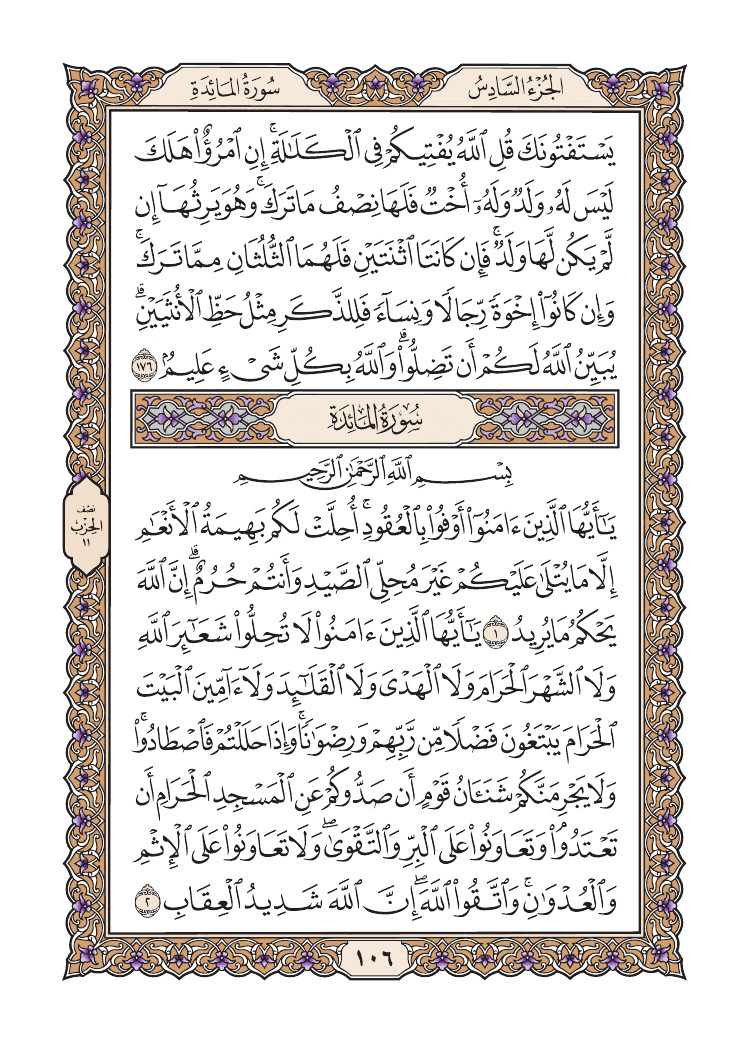 الجزء السادس
سورة المائدة
يَسْتَفْتُونَكَ قُلِ ٱللَّهُ يُفْتِيكُمْ فِى ٱلْكَلَٰلَةِ ۚ إِنِ ٱمْرُؤٌا۟ هَلَكَ
لَيْسَ لَهُۥ وَلَدٌ وَلَهُۥٓ أُخْتٌ فَلَهَا نِصْفُ مَا تَرَكَ ۚ وَهُوَ يَرِثُهَآ إِن
لَّمْ يَكُن لَّهَا وَلَدٌ ۚ فَإِن كَانَتَا ٱثْنَتَيْنِ فَلَهُمَا ٱلثُّلُثَانِ مِمَّا تَرَكَ ۚ
وَإِن كَانُوٓا۟ إِخْوَةً رِّجَالًا وَنِسَآءً فَلِلذَّكَرِ مِثْلُ حَظِّ ٱلْأُنثَيَيْنِ ۗ
يُبَيِّنُ ٱللَّهُ لَكُمْ أَن تَضِلُّوا۟ ۗ وَٱللَّهُ بِكُلِّ شَىْءٍ عَلِيمٌۢ ١٧٦
سُورَةُ المَائِدَةِ
بِسْمِ ٱللَّهِ ٱلرَّحْمَٰنِ ٱلرَّحِيمِ
يَٰٓأَيُّهَا ٱلَّذِينَ ءَامَنُوٓا۟ أَوْفُوا۟ بِٱلْعُقُودِ ۚ أُحِلَّتْ لَكُم بَهِيمَةُ ٱلْأَنْعَٰمِ
إِلَّا مَا يُتْلَىٰ عَلَيْكُمْ غَيْرَ مُحِلِّى ٱلصَّيْدِ وَأَنتُمْ حُرُمٌ ۗ إِنَّ ٱللَّهَ
يَحْكُمُ مَا يُرِيدُ ١ يَٰٓأَيُّهَا ٱلَّذِينَ ءَامَنُوا۟ لَا تُحِلُّوا۟ شَعَٰٓئِرَ ٱللَّهِ
وَلَا ٱلشَّهْرَ ٱلْحَرَامَ وَلَا ٱلْهَدْىَ وَلَا ٱلْقَلَٰٓئِدَ وَلَآ ءَآمِّينَ ٱلْبَيْتَ
ٱلْحَرَامَ يَبْتَغُونَ فَضْلًا مِّن رَّبِّهِمْ وَرِضْوَٰنًا ۚ وَإِذَا حَلَلْتُمْ فَٱصْطَادُوا۟ ۚ
وَلَا يَجْرِمَنَّكُمْ شَنَـَٔانُ قَوْمٍ أَن صَدُّوكُمْ عَنِ ٱلْمَسْجِدِ ٱلْحَرَامِ أَن
تَعْتَدُوا۟ ۘ وَتَعَاوَنُوا۟ عَلَى ٱلْبِرِّ وَٱلتَّقْوَىٰ ۖ وَلَا تَعَاوَنُوا۟ عَلَى ٱلْإِثْمِ
وَٱلْعُدْوَٰنِ ۚ وَٱتَّقُوا۟ ٱللَّهَ ۖ إِنَّ ٱللَّهَ شَدِيدُ ٱلْعِقَابِ ٢
نصف
الحزب
١١
١٠٦